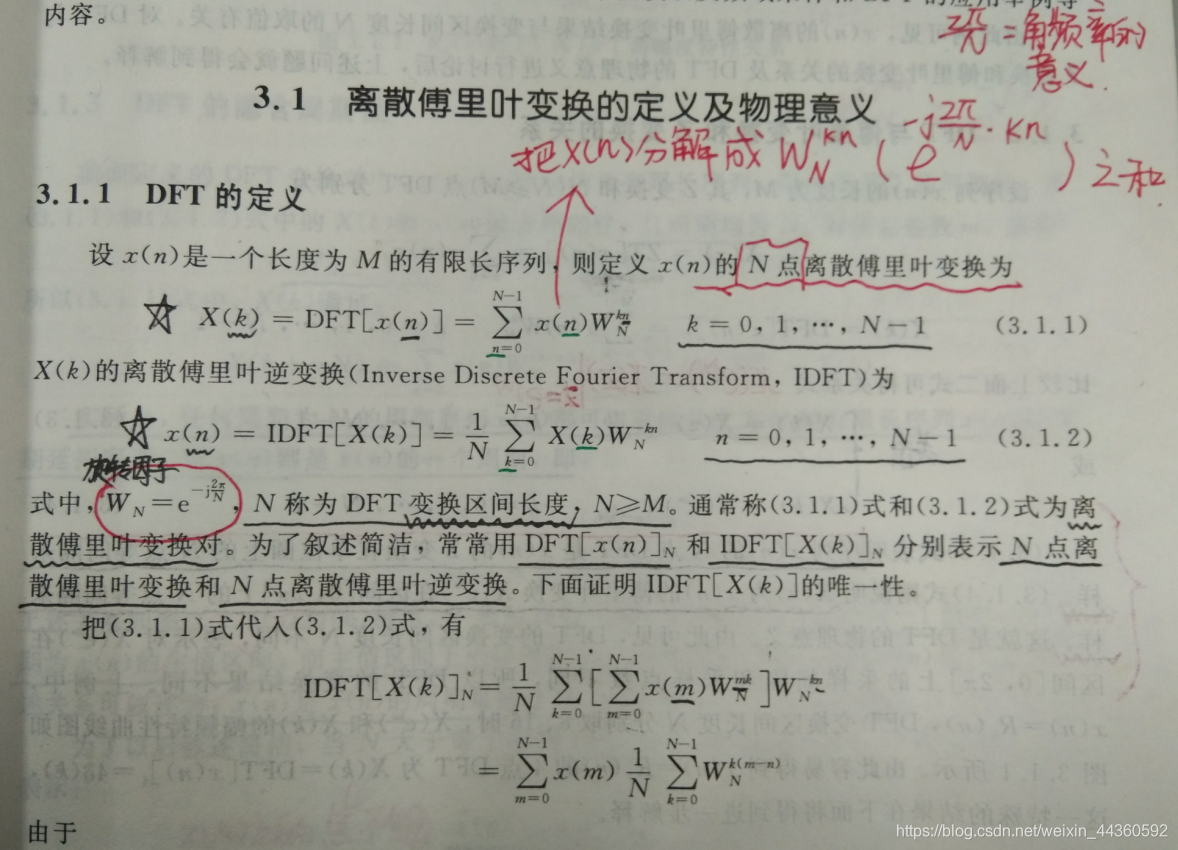 内容。
2π/N = 角频率的
意义.
3.1 离散傅里叶变换的定义及物理意义
把X(n)分解成 W_N^{kn} (e^{-j\frac{2π}{N}·kn}) 之和.
3.1.1 DFT 的定义
设 x(n)是一个长度为 M 的有限长序列, 则定义 x(n)的 N 点离散傅里叶变换为
☆ X(k) = DFT[x(n)] = \sum_{n=0}^{N-1} x(n)W_N^{kn} k = 0, 1, ⋯, N−1 (3.1.1)
X(k)的离散傅里叶逆变换(Inverse Discrete Fourier Transform, IDFT)为
☆ x(n) = IDFT[X(k)] = \frac{1}{N} \sum_{k=0}^{N-1} X(k)W_N^{-kn} n = 0, 1, ⋯, N−1 (3.1.2)
旋转因子
式中, W_N = e^{-j\frac{2π}{N}}, N 称为 DFT 变换区间长度, N≥M。通常称(3.1.1)式和(3.1.2)式为离
散傅里叶变换对。为了叙述简洁, 常常用 DFT[x(n)]_N 和 IDFT[X(k)]_N 分别表示 N 点离
散傅里叶变换和 N 点离散傅里叶逆变换。下面证明 IDFT[X(k)]的唯一性。
把(3.1.1)式代入(3.1.2)式, 有
IDFT[X(k)]_N = \frac{1}{N} \sum_{k=0}^{N-1} [\sum_{m=0}^{N-1} x(m)W_N^{mk}]W_N^{-kn}
= \sum_{m=0}^{N-1} x(m) \frac{1}{N} \sum_{k=0}^{N-1} W_N^{k(m-n)}
由于
https://blog.csdn.net/weixin_44360592